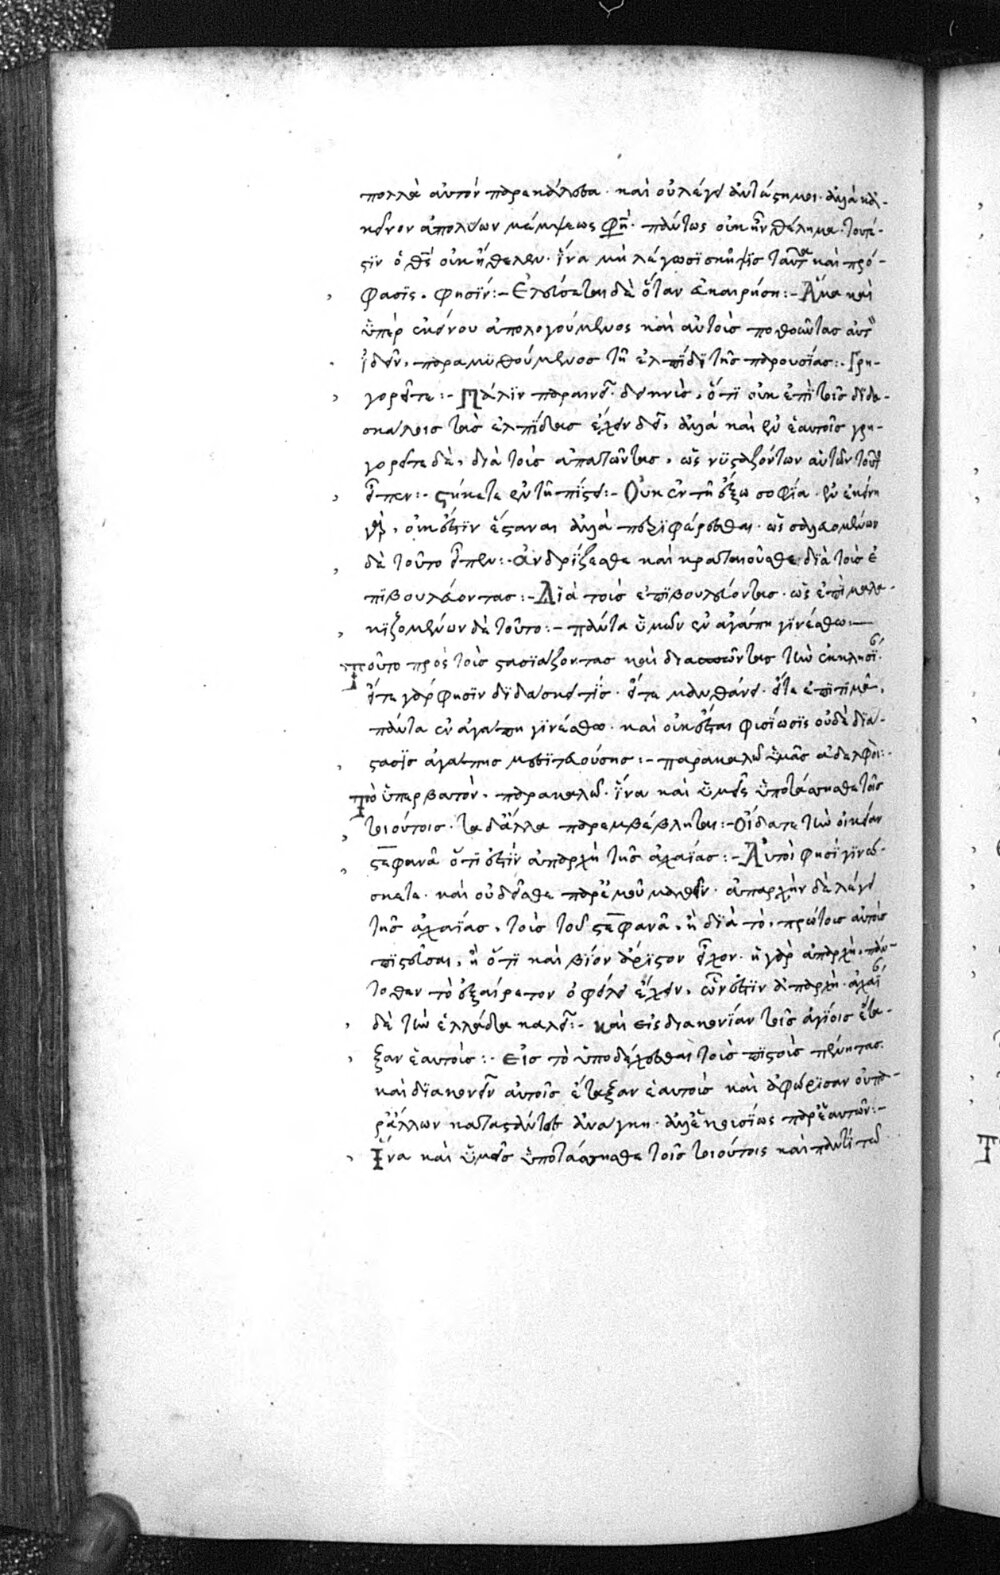 πολλὰ αὐτὸν παρεκάλεσα· καὶ οὐ λέγει ἀντέστη μοι· ἀλλὰ κἀ-
κεῖνον ἀπολύων μέμψεως φη· πάντως οὐκ ἦν θέλημα· τουτέ-
στιν ὁ θς οὐκ ἤθελεν· ἵνα μὴ λέγωσι σκῆψις ταῦτα καὶ πρό-
φασις· φησίν:- Ἐλεύσεται δὲ ὅταν εὐκαιρήση:- Ἅμα καὶ
ὑπὲρ ἐκείνου ἀπολογούμενος καὶ αὐτοὺς ποθοῦντας αὐτὸν
ἰδεῖν, παραμυθούμενος τῇ ἐλπίδι τῆς παρουσίας:- Γρη-
γορεῖτε:- Πάλιν παραινεῖ δεικνὺς, ὅτι οὐκ ἐπὶ τοῖς διδα-
σκάλοις τὰς ἐλπίδας ἔχειν δεῖ, ἀλλὰ καὶ ἐν ἑαυτοῖς γρη-
γορεῖτε δὲ, διὰ τοὺς ἀπατῶντας, ὡς νυσταζόντων αὐτῶν τοῦτο
εἶπεν:- στήκετε ἐν τῇ πίστει:- Οὐκ ἐν τῇ ἔξω σοφία· ἐν ἐκείνη
γὰρ, οὐκ ἔστιν ἑστάναι ἀλλὰ περιφέρεσθαι· ὡς σαλευομένων
δὲ τοῦτο εἶπεν:- ἀνδρίζεσθε καὶ κραταιοῦσθε διὰ τοὺς ἐ
πιβουλεύοντας:- Διὰ τοὺς ἐπιβουλεύοντας· ὡς ἐπὶ μαλα-
κιζομένων δὲ τοῦτο:- πάντα ὑμῶν ἐν ἀγάπη γινέσθω:-
Τοῦτο πρὸς τοὺς στασιάζοντας καὶ διασπῶντας τὴν ἐκκλησί·
εἴτε γάρ φησιν διδάσκει τίς· εἴτε μανθάνει· εἴτε ἐπιτιμᾶ,
πάντα ἐν ἀγάπη γινέσθω· καὶ οὐκ ἔσται φυσίωσις οὐδὲ διά-
στασις ἀγάπης μεσιτευούσης:- παρακαλῶ ὑμᾶς ἀδελφοί:-
Τὸ ὑπερβατὸν· παρακαλῶ· ἵνα καὶ ὑμεῖς ὑποτάσσησθε τοῖς
τοιούτοις· τὰ δ' ἄλλα παρεμβέβληται:- Οἴδατε τὴν οἰκίαν
στεφανᾶ ὅτι ἐστὶν ἀπαρχὴ τῆς ἀχαΐας:- Αὐτοί φησι γινώ-
σκετε· καὶ οὐ δεῖσθε παρ' ἐμοῦ μαθεῖν· ἀπαρχὴν δὲ λέγει
τῆς ἀχαΐας, τοὺς τοῦ στεφανᾶ, ἢ διὰ τὸ, πρώτους αὐτοὺς
πιστεῦσαι, ἢ ὅτι καὶ βίον ἄριστον εἶχον· ἡ γὰρ ἀπαρχὴ, πάν-
τοθεν τὸ ἐξαίρετον ὀφείλει ἔχειν, ὧν ἐστὶν ἀπαρχὴ· ἀχαΐ
δὲ τὴν ἑλλάδα καλεῖ:- καὶ εἰς διακονίαν τοῖς ἁγίοις ἔτα-
ξαν ἑαυτούς:- Εἰς τὸ ὑποδέχεσθαι τοὺς πιστοὺς πένητας
καὶ διακονεῖν αὐτοῖς ἔταξαν ἑαυτοὺς καὶ ἀφώρισαν οὐ πα-
ρ' ἄλλων κατασταθέντες ἀνάγκη· ἀλλ' ἑκουσίως παρ' ἑαυτῶν:-
Ἵνα καὶ ὑμεῖς ὑποτάσσησθε τοῖς τοιούτοις καὶ παντὶ τῶ